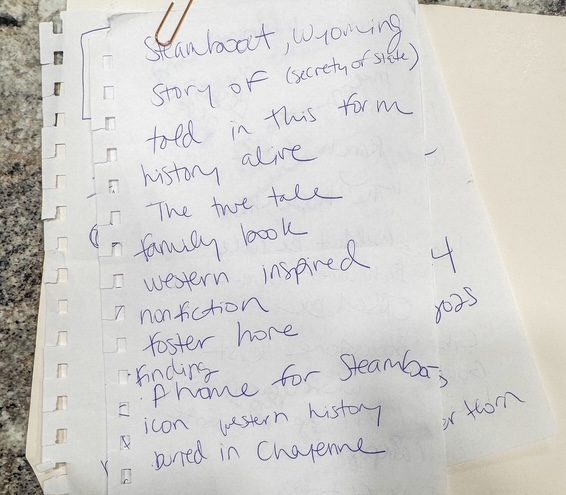 Steamboat, Wyoming
Story of (secrety of state)
told in this form
history alive
The true tale
family book
western inspired
nonfiction
foster home
finding
A home for Steamboa
icon western history
buried in Chayenne
4